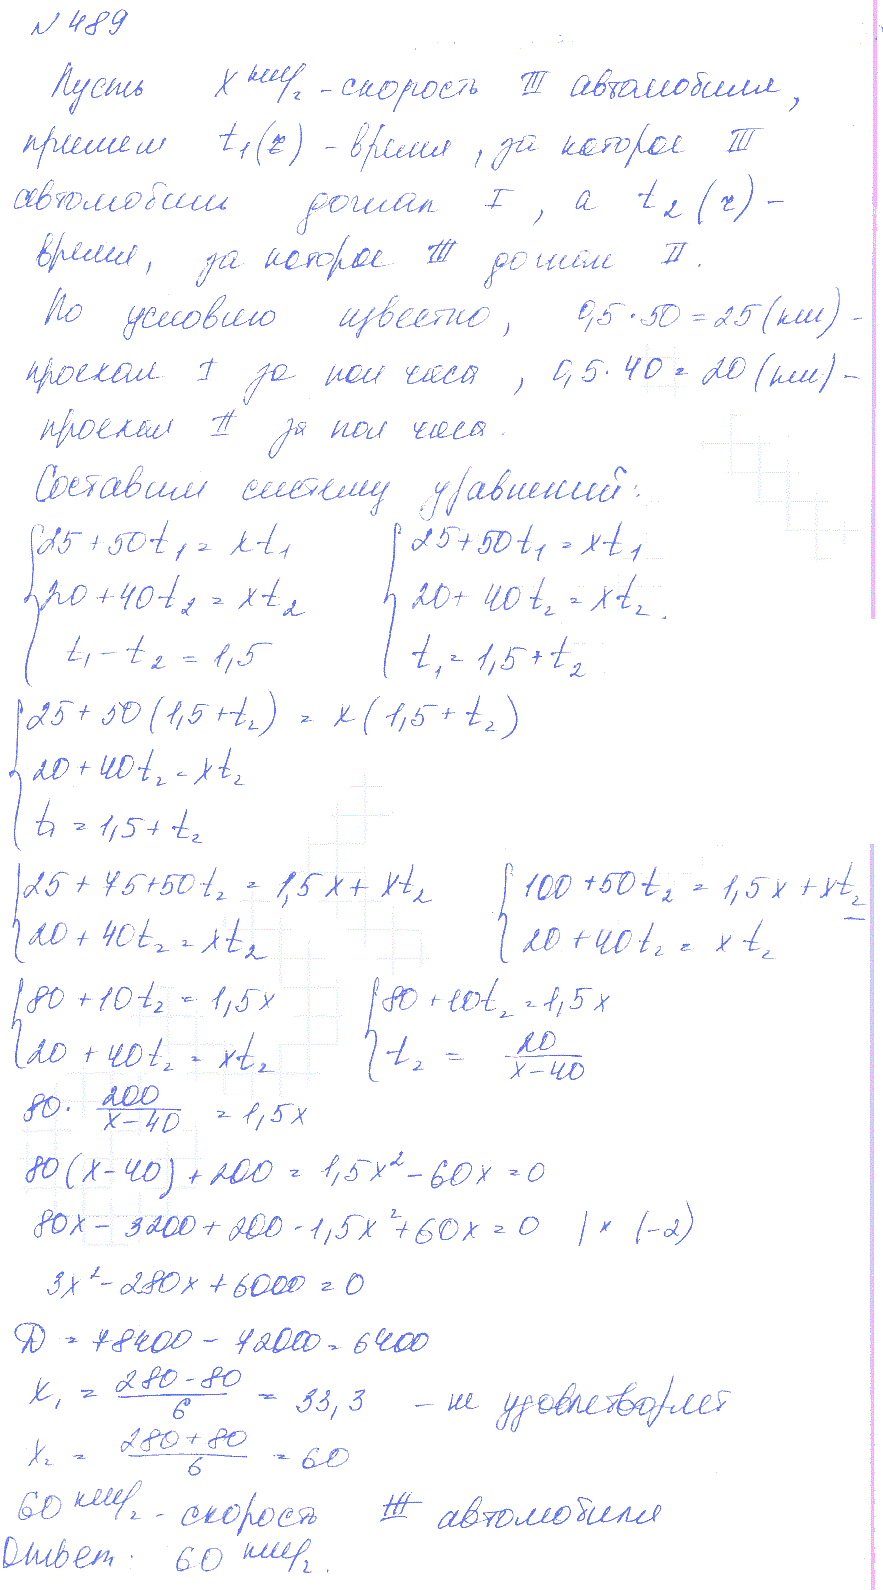 N 489
Пусть x км/ч - скорость III автомобиля,
причем t₁(ч) - время, за которое III
автомобиль догнал I, а t₂(ч) -
время, за которое III догнал II.
По условию известно, 0,5·50=25(км) -
проехал I за пол часа, 0,5·40=20(км) -
проехал II за пол часа.
Составим систему уравнений:
{25+50t₁=xt₁ {25+50t₁=xt₁
20+40t₂=xt₂ 20+40t₂=xt₂.
t₁-t₂=1,5 t₁=1,5+t₂
{25+50(1,5+t₂)=x(1,5+t₂)
20+40t₂=xt₂
t₁=1,5+t₂
{25+75+50t₂=1,5x+xt₂ {100+50t₂=1,5x+xt₂
20+40t₂=xt₂ 20+40t₂=xt₂
{80+10t₂=1,5x {80+10t₂=1,5x
20+40t₂=xt₂ t₂=20/(x-40)
80·200/(x-40)=1,5x
80(x-40)+200=1,5x²-60x=0
80x-3200+200-1,5x²+60x=0 |×(-2)
3x²-280x+6000=0
D=78400-72000=6400
x₁=(280-80)/6=33,3 - не удовлетворяет
x₂=(280+80)/6=60
60 км/ч - скорость III автомобиля
Ответ: 60 км/ч.